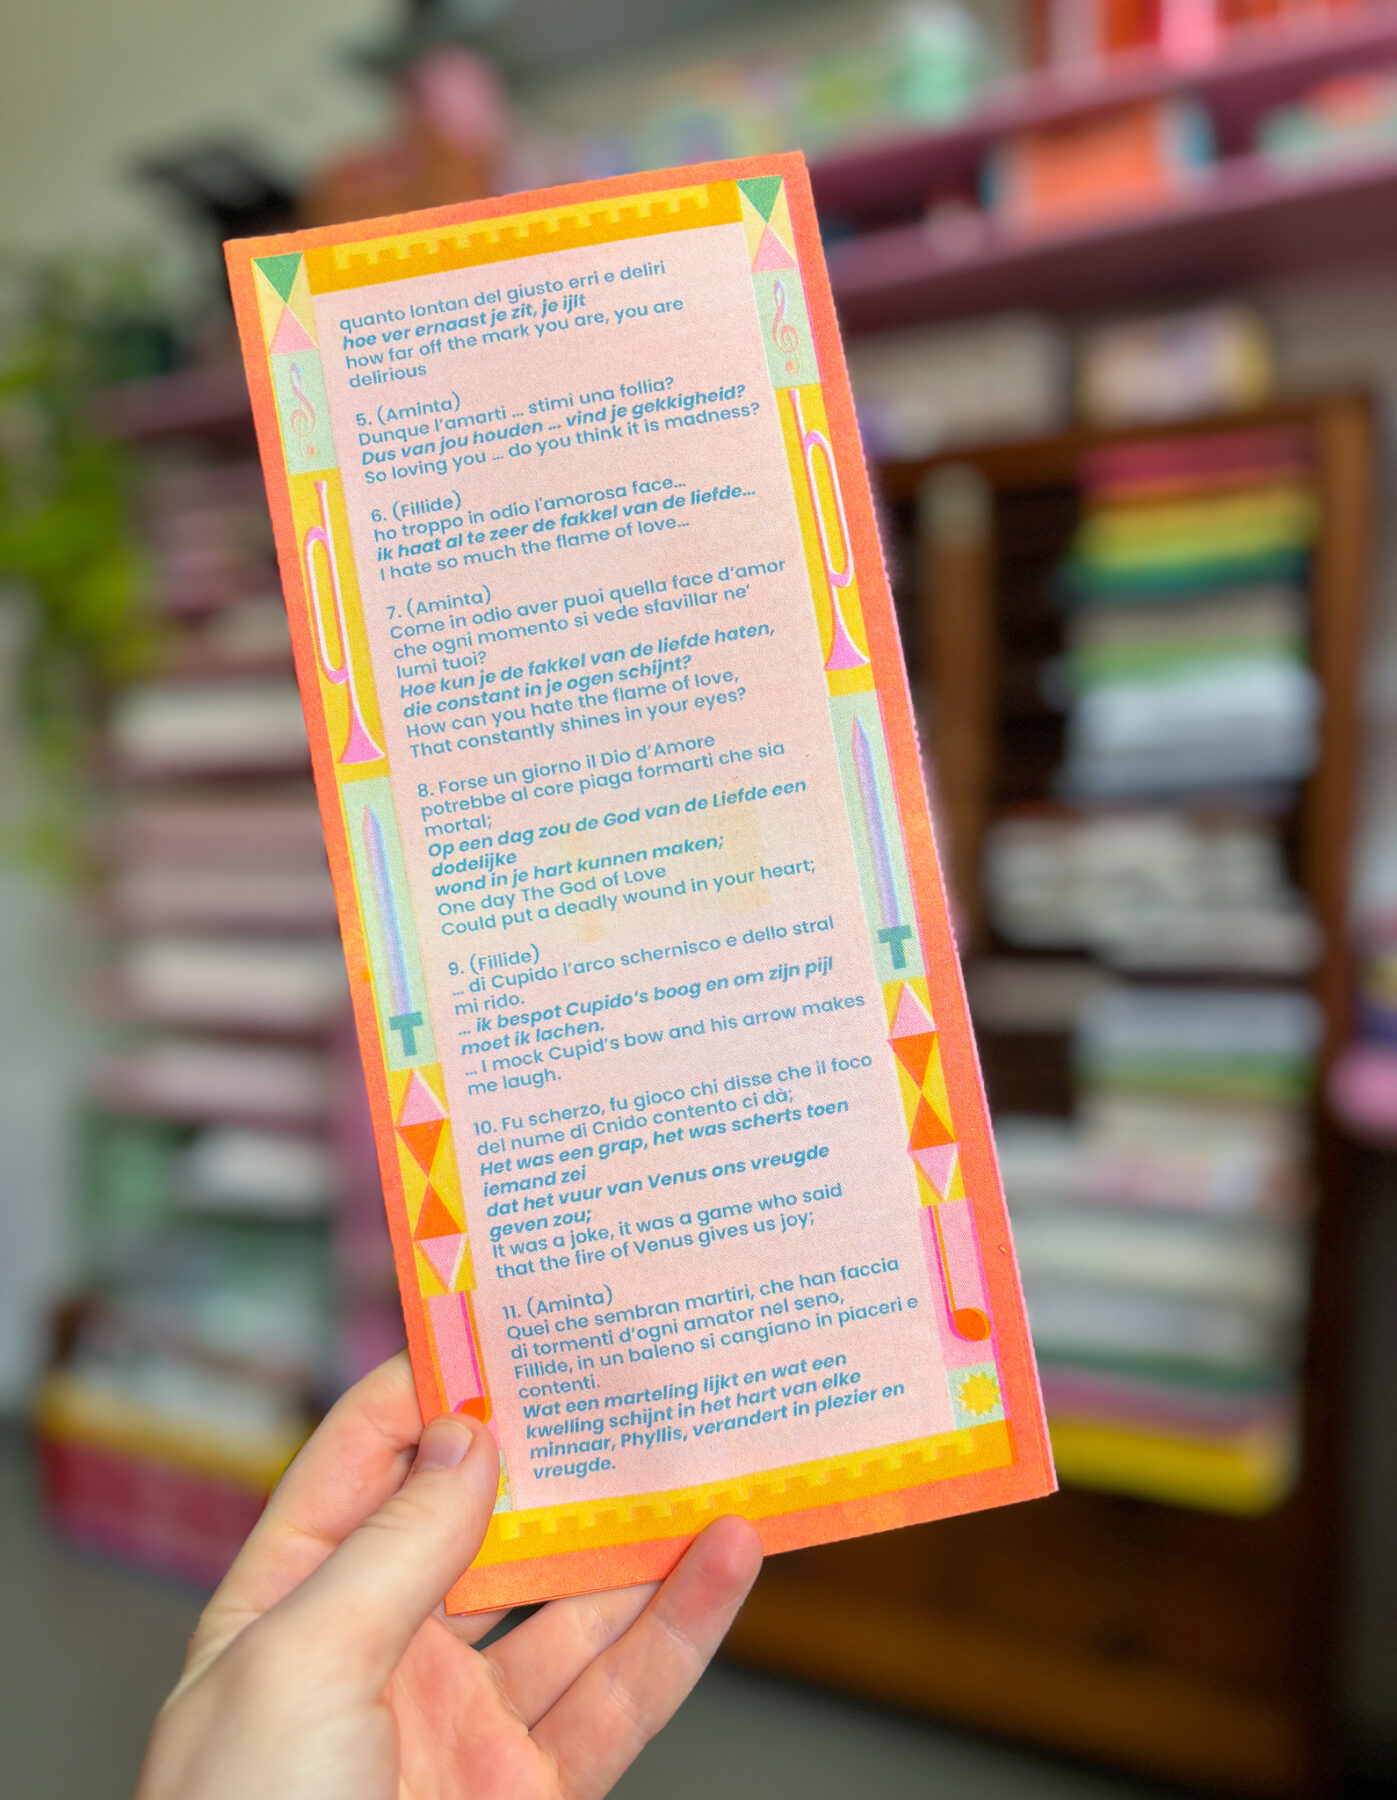 quanto lontan del giusto erri e deliri
hoe ver ernaast je zit, je ijlt
how far off the mark you are, you are
delirious
5. (Aminta)
Dunque l'amarti ... stimi una follia?
Dus van jou houden ... vind je gekkigheid?
So loving you ... do you think it is madness?
6. (Fillide)
ho troppo in odio l'amorosa face...
ik haat al te zeer de fakkel van de liefde...
I hate so much the flame of love...
7. (Aminta)
Come in odio aver puoi quella face d'amor
che ogni momento si vede sfavillar ne'
lumi tuoi?
Hoe kun je de fakkel van de liefde haten,
die constant in je ogen schijnt?
How can you hate the flame of love,
That constantly shines in your eyes?
8. Forse un giorno il Dio d'Amore
potrebbe al core piaga formarti che sia
mortal;
Op een dag zou de God van de Liefde een
dodelijke
wond in je hart kunnen maken;
One day The God of Love
Could put a deadly wound in your heart;
9. (Fillide)
... di Cupido l'arco schernisco e dello stral
mi rido.
... ik bespot Cupido's boog en om zijn pijl
moet ik lachen.
... I mock Cupid's bow and his arrow makes
me laugh.
10. Fu scherzo, fu gioco chi disse che il foco
del nume di Cnido contento ci dà;
Het was een grap, het was scherts toen
iemand zei
dat het vuur van Venus ons vreugde
geven zou;
It was a joke, it was a game who said
that the fire of Venus gives us joy;
11. (Aminta)
Quei che sembran martiri, che han faccia
di tormenti d'ogni amator nel seno,
Fillide, in un baleno si cangiano in piaceri e
contenti.
Wat een marteling lijkt en wat een
kwelling schijnt in het hart van elke
minnaar, Phyllis, verandert in plezier en
vreugde.